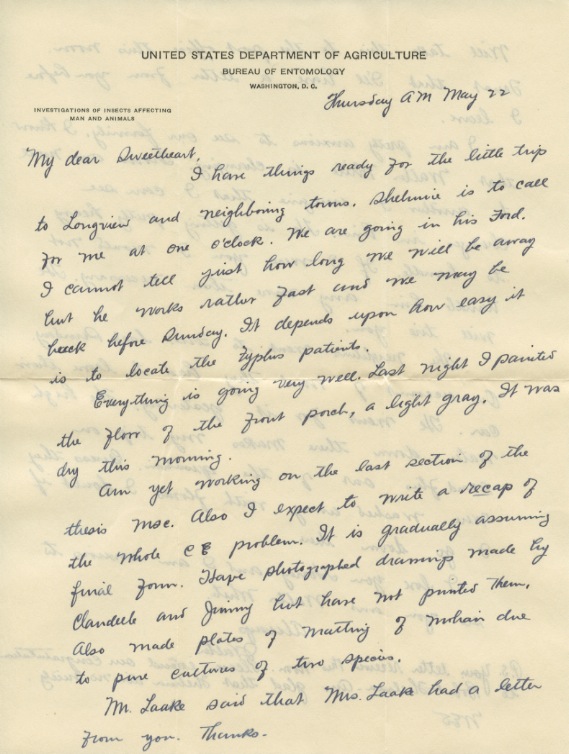 UNITED STATES DEPARTMENT OF AGRICULTURE
BUREAU OF ENTOMOLOGY
WASHINGTON, D. C.
Thursday AM May 22
INVESTIGATIONS OF INSECTS AFFECTING
MAN AND ANIMALS
My dear Sweetheart,
I have things ready for the little trip
to Longview and neighboring towns. Shelmire is to call
for me at one o'clock. We are going in his Ford.
I cannot tell just how long we will be away
but he works rather fast and we may be
back before Sunday. It depends upon how easy it
is to locate the typhus patients.
Everything is going very well. Last night I painted
the floor of the front porch, a light gray. It was
dry this morning.
Am yet working on the last section of the
thesis Msc. Also I expect to write a recap of
the whole problem. It is gradually assuming
final form. Have photographed drawings made by
and Jimmy but have not printed them.
Also made plates of matting of mohair due
to pure cultures of two species.
Mr. Laake said that Mrs. Laake had a letter
from you. Thanks.